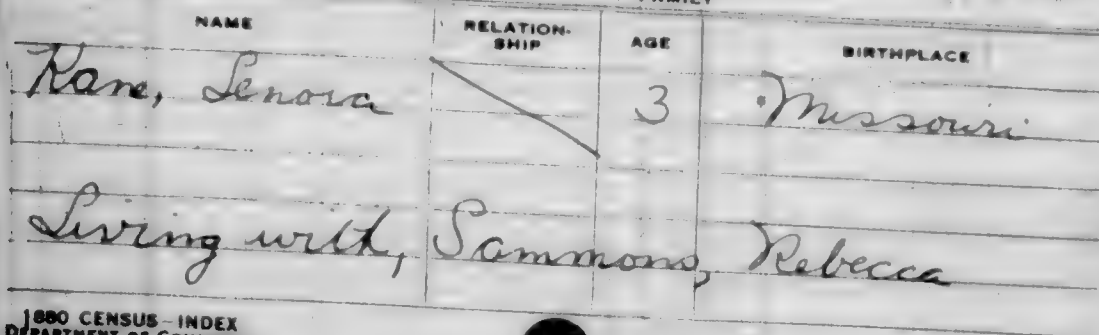 FAMILY
NAME RELATION-SHIP AGE BIRTHPLACE
Kane, Lenora 3 Missouri
Living with, Sammons, Rebecca
1880 CENSUS - INDEX
DEPARTMENT OF